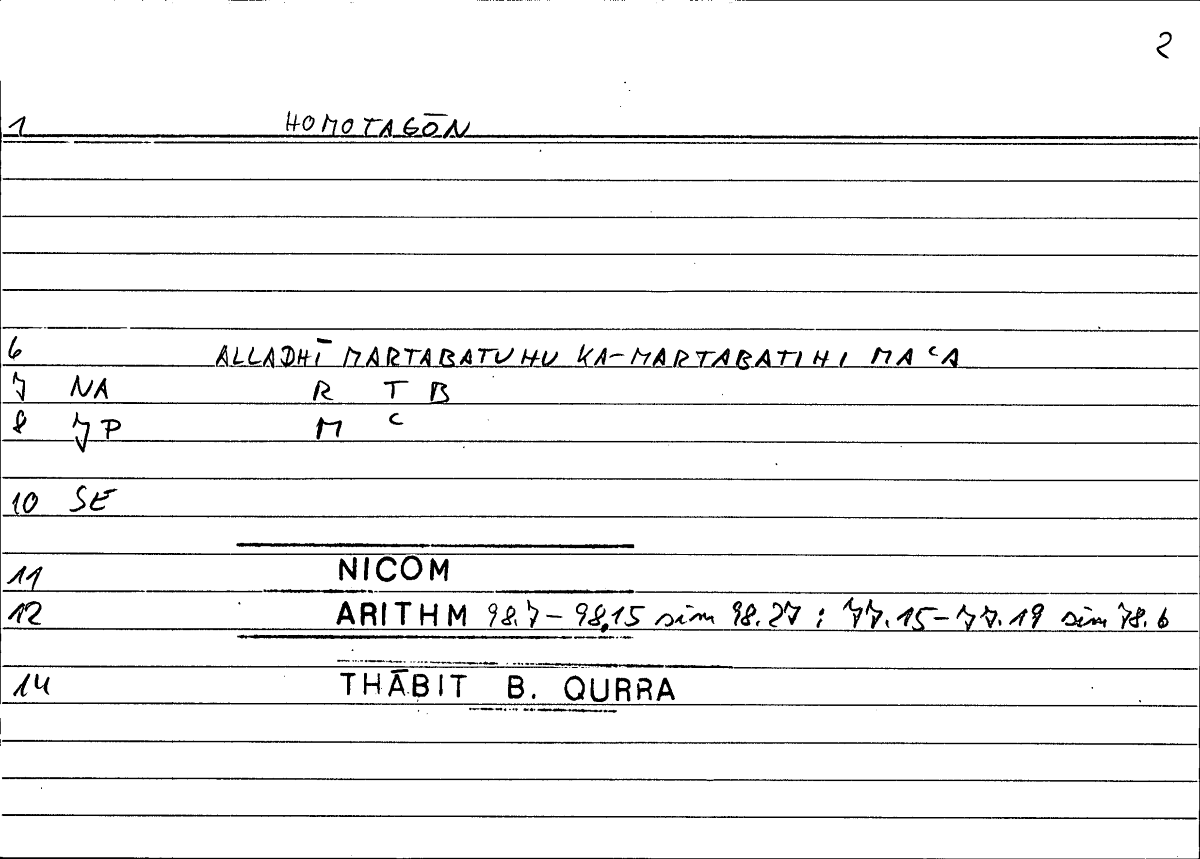 2
1 HOMOTAGŌN
6 ALLADHĪ MARTABATUHU KA-MARTABATIHI MAʿA
7 NA R T B
8 JP M ʿ
10 SE
11 NICOM
12 ARITHM 98.7-98.15 sim 98.27 : 77.15-77.19 sim 78.6
14 THĀBIT B. QURRA